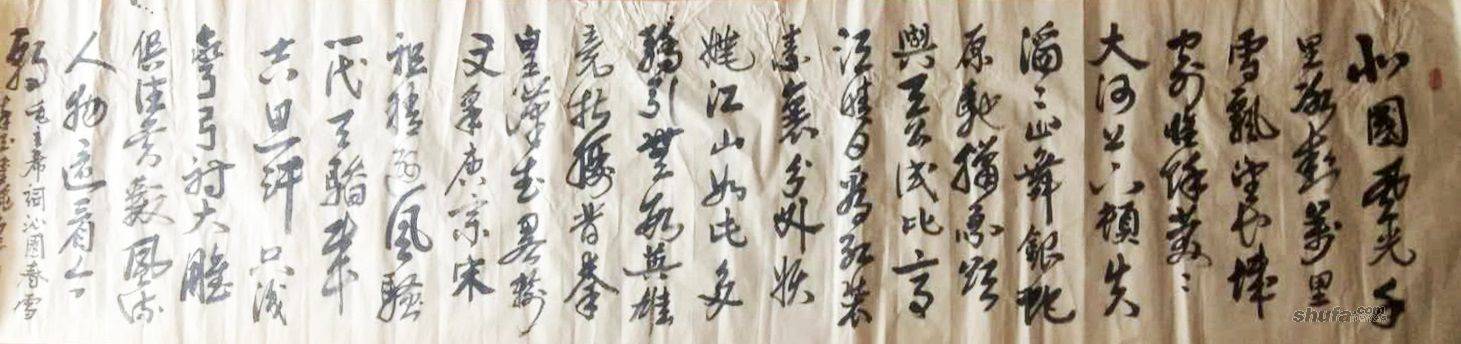 北國风光千
里冰封萬里
雪飄望长城
内外惟餘莽〻
大河上下顿失
滔〻山舞銀蛇
原馳蠟象欲
與天公试比高
须晴日看红装
素裹分外妖
娆江山如此多
嬌引無數英雄
竞折腰昔秦
皇漢武畧输
文采唐宗宋
祖稍逊风骚
一代天骄成
吉思汗只識
彎弓射大雕
俱往矣数風流
人物还看今
朝
毛主席词沁园春雪
shufa.com